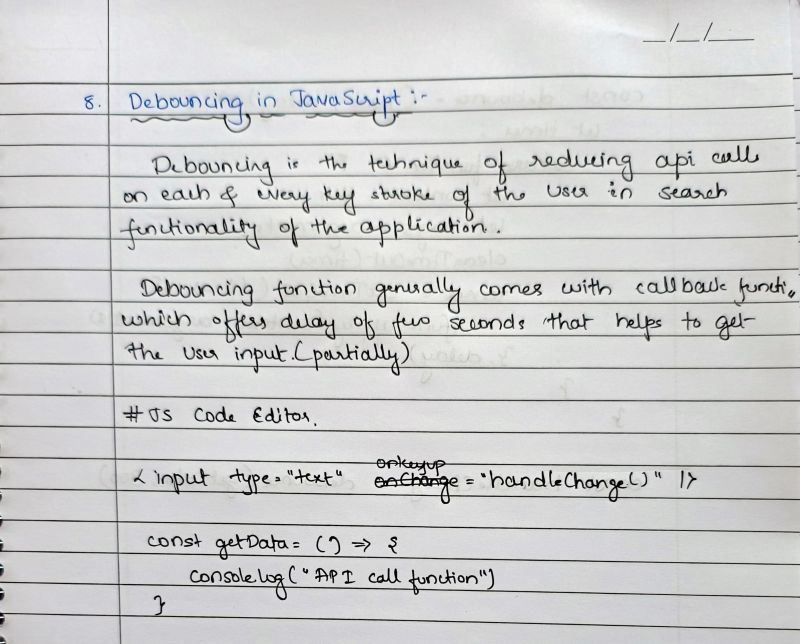 __/__/____
8. Debouncing in JavaScript :-
Debouncing is the technique of reducing api calls
on each & every key stroke of the user in search
functionality of the application.
Debouncing function generally comes with callback functi
which offers delay of few seconds that helps to get
the user input. (partially)
# JS Code Editor.
onkeyup
< input type = "text" onChange = "handleChange()" />
const getData = () => {
console.log("API call function")
}